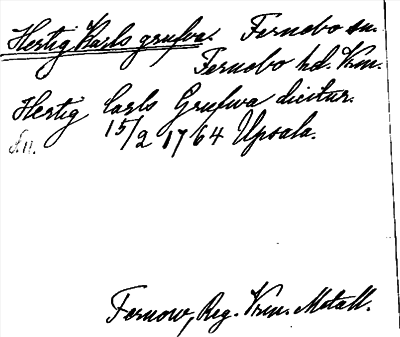 Hertig Karls grufva. Fernebo sn.
Fernebo hd. Vrm.
Hertig Carls Grufwa dicitur.
15/2 1764 Upsala.
Fernow, Reg. Vrm. Metall.